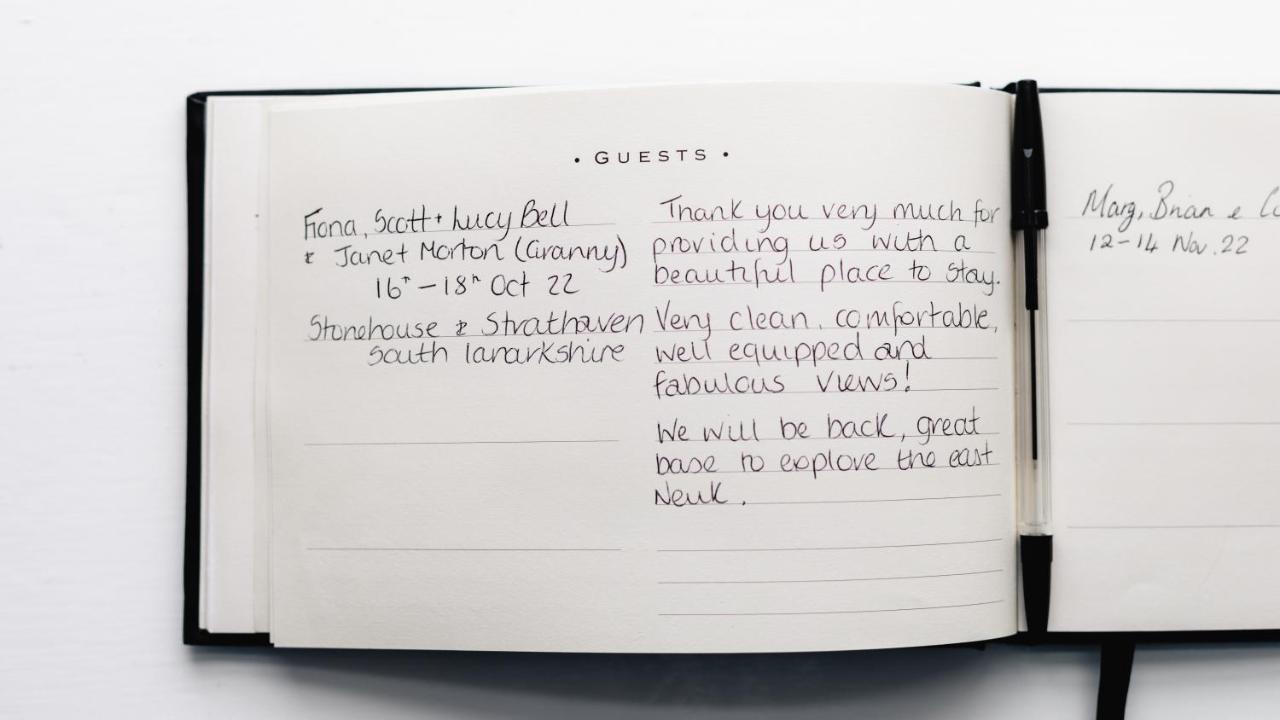 • GUESTS •
Fiona, Scott + Lucy Bell
& Janet Morton (Granny)
16th – 18th Oct 22
Stonehouse & Strathaven
South lanarkshire
Thank you very much for
providing us with a
beautiful place to stay.
Very clean, comfortable,
well equipped and
fabulous views!
We will be back, great
base to explore the east
Neuk.
Marg, Brian &
12–14 Nov. 22